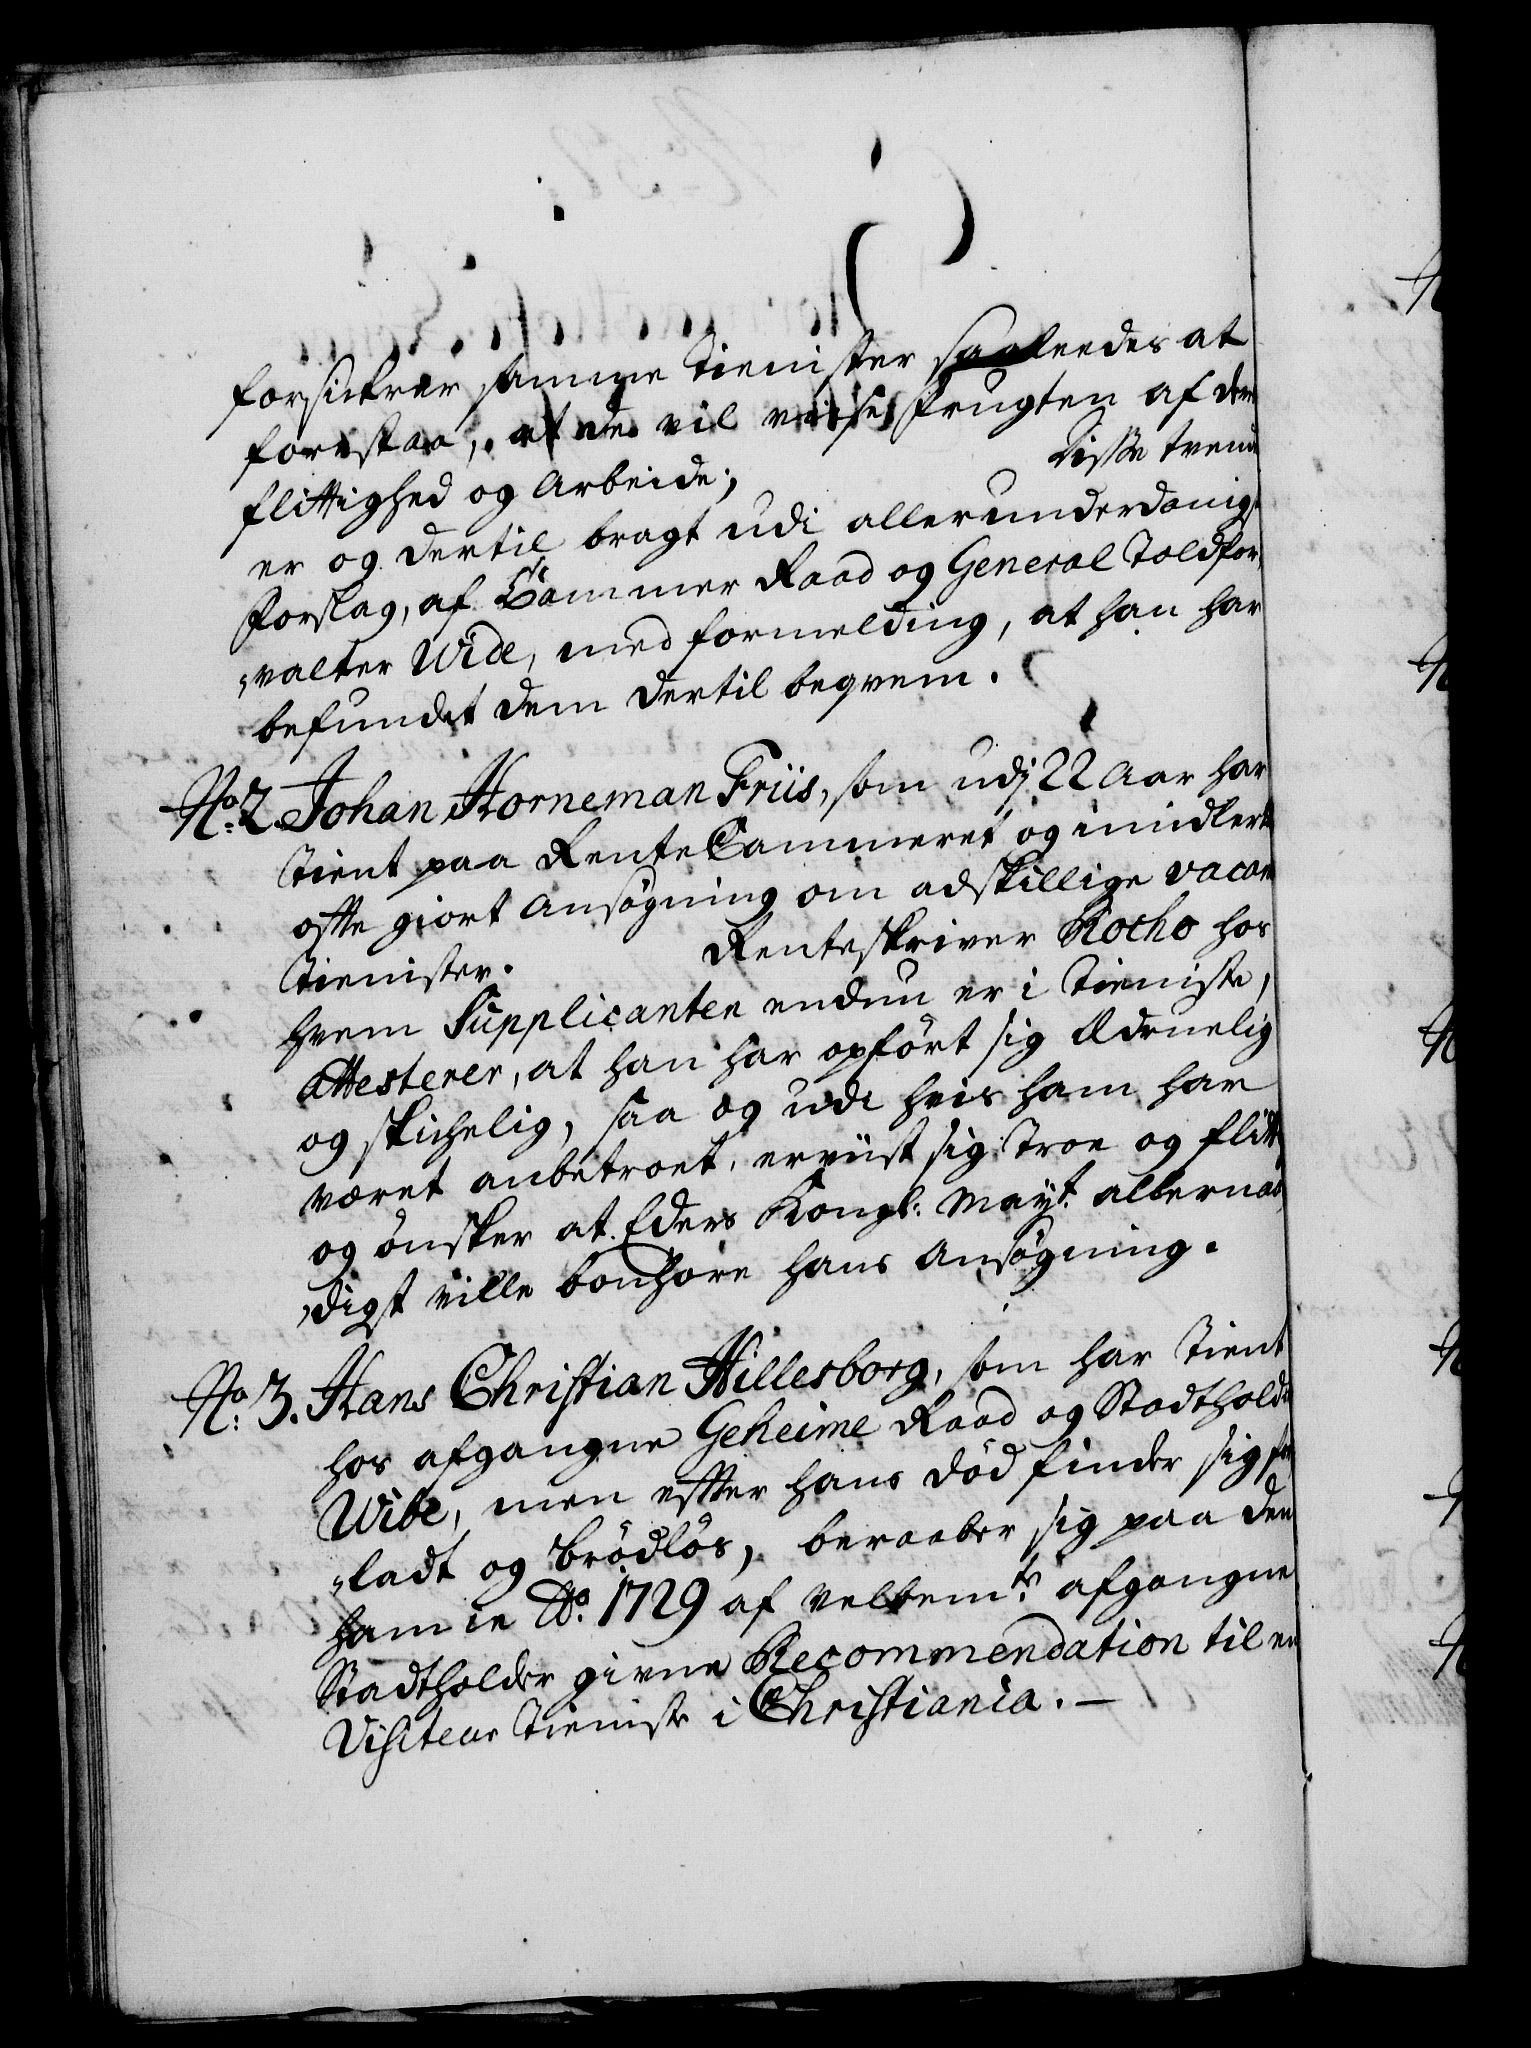 forsickrer samme Tienister saaleedes at
forestaa, at de vil viise Frugten af deres
flittighed og Arbeide; Disse trende
er og dertil bragt udi allerunderdanigst
Forslag, af Cammer Raad og General Toldfor,
„valter Wide, med formelding, at han har
befundet dem dertil beqvem.
No: 2. Johan Horneman Friis, som udj 22 Aar har
tient paa RenteCammeret og imidlertid
offte giort Ansøgning om adskillige vacante
Tienister. Renteskriver Rocho hos
hvem Supplicanten endnu er i Tieniste,
Attesterer, at han har opført sig Ædruelig
og skichelig, saa og udi hvis ham har
været anbetroet, erviist sig Troe og flittig
og ønsker at Eders Kongl: Mayt. allernaa,
„digst ville bønhøre hans Ansøgning.
No: 3. Hans Christian Hillesborg, som har tient
hos afgangne Geheime Raad og Stadtholder
Wibe, men effter hans død finder sig for,
„ladt og brødløs, beraaber sig paa den
ham in Ao. 1729 af velbemte. afgangne
Stadtholder givne Recommendation til en
Visiteur Tieniste i Christiania. —